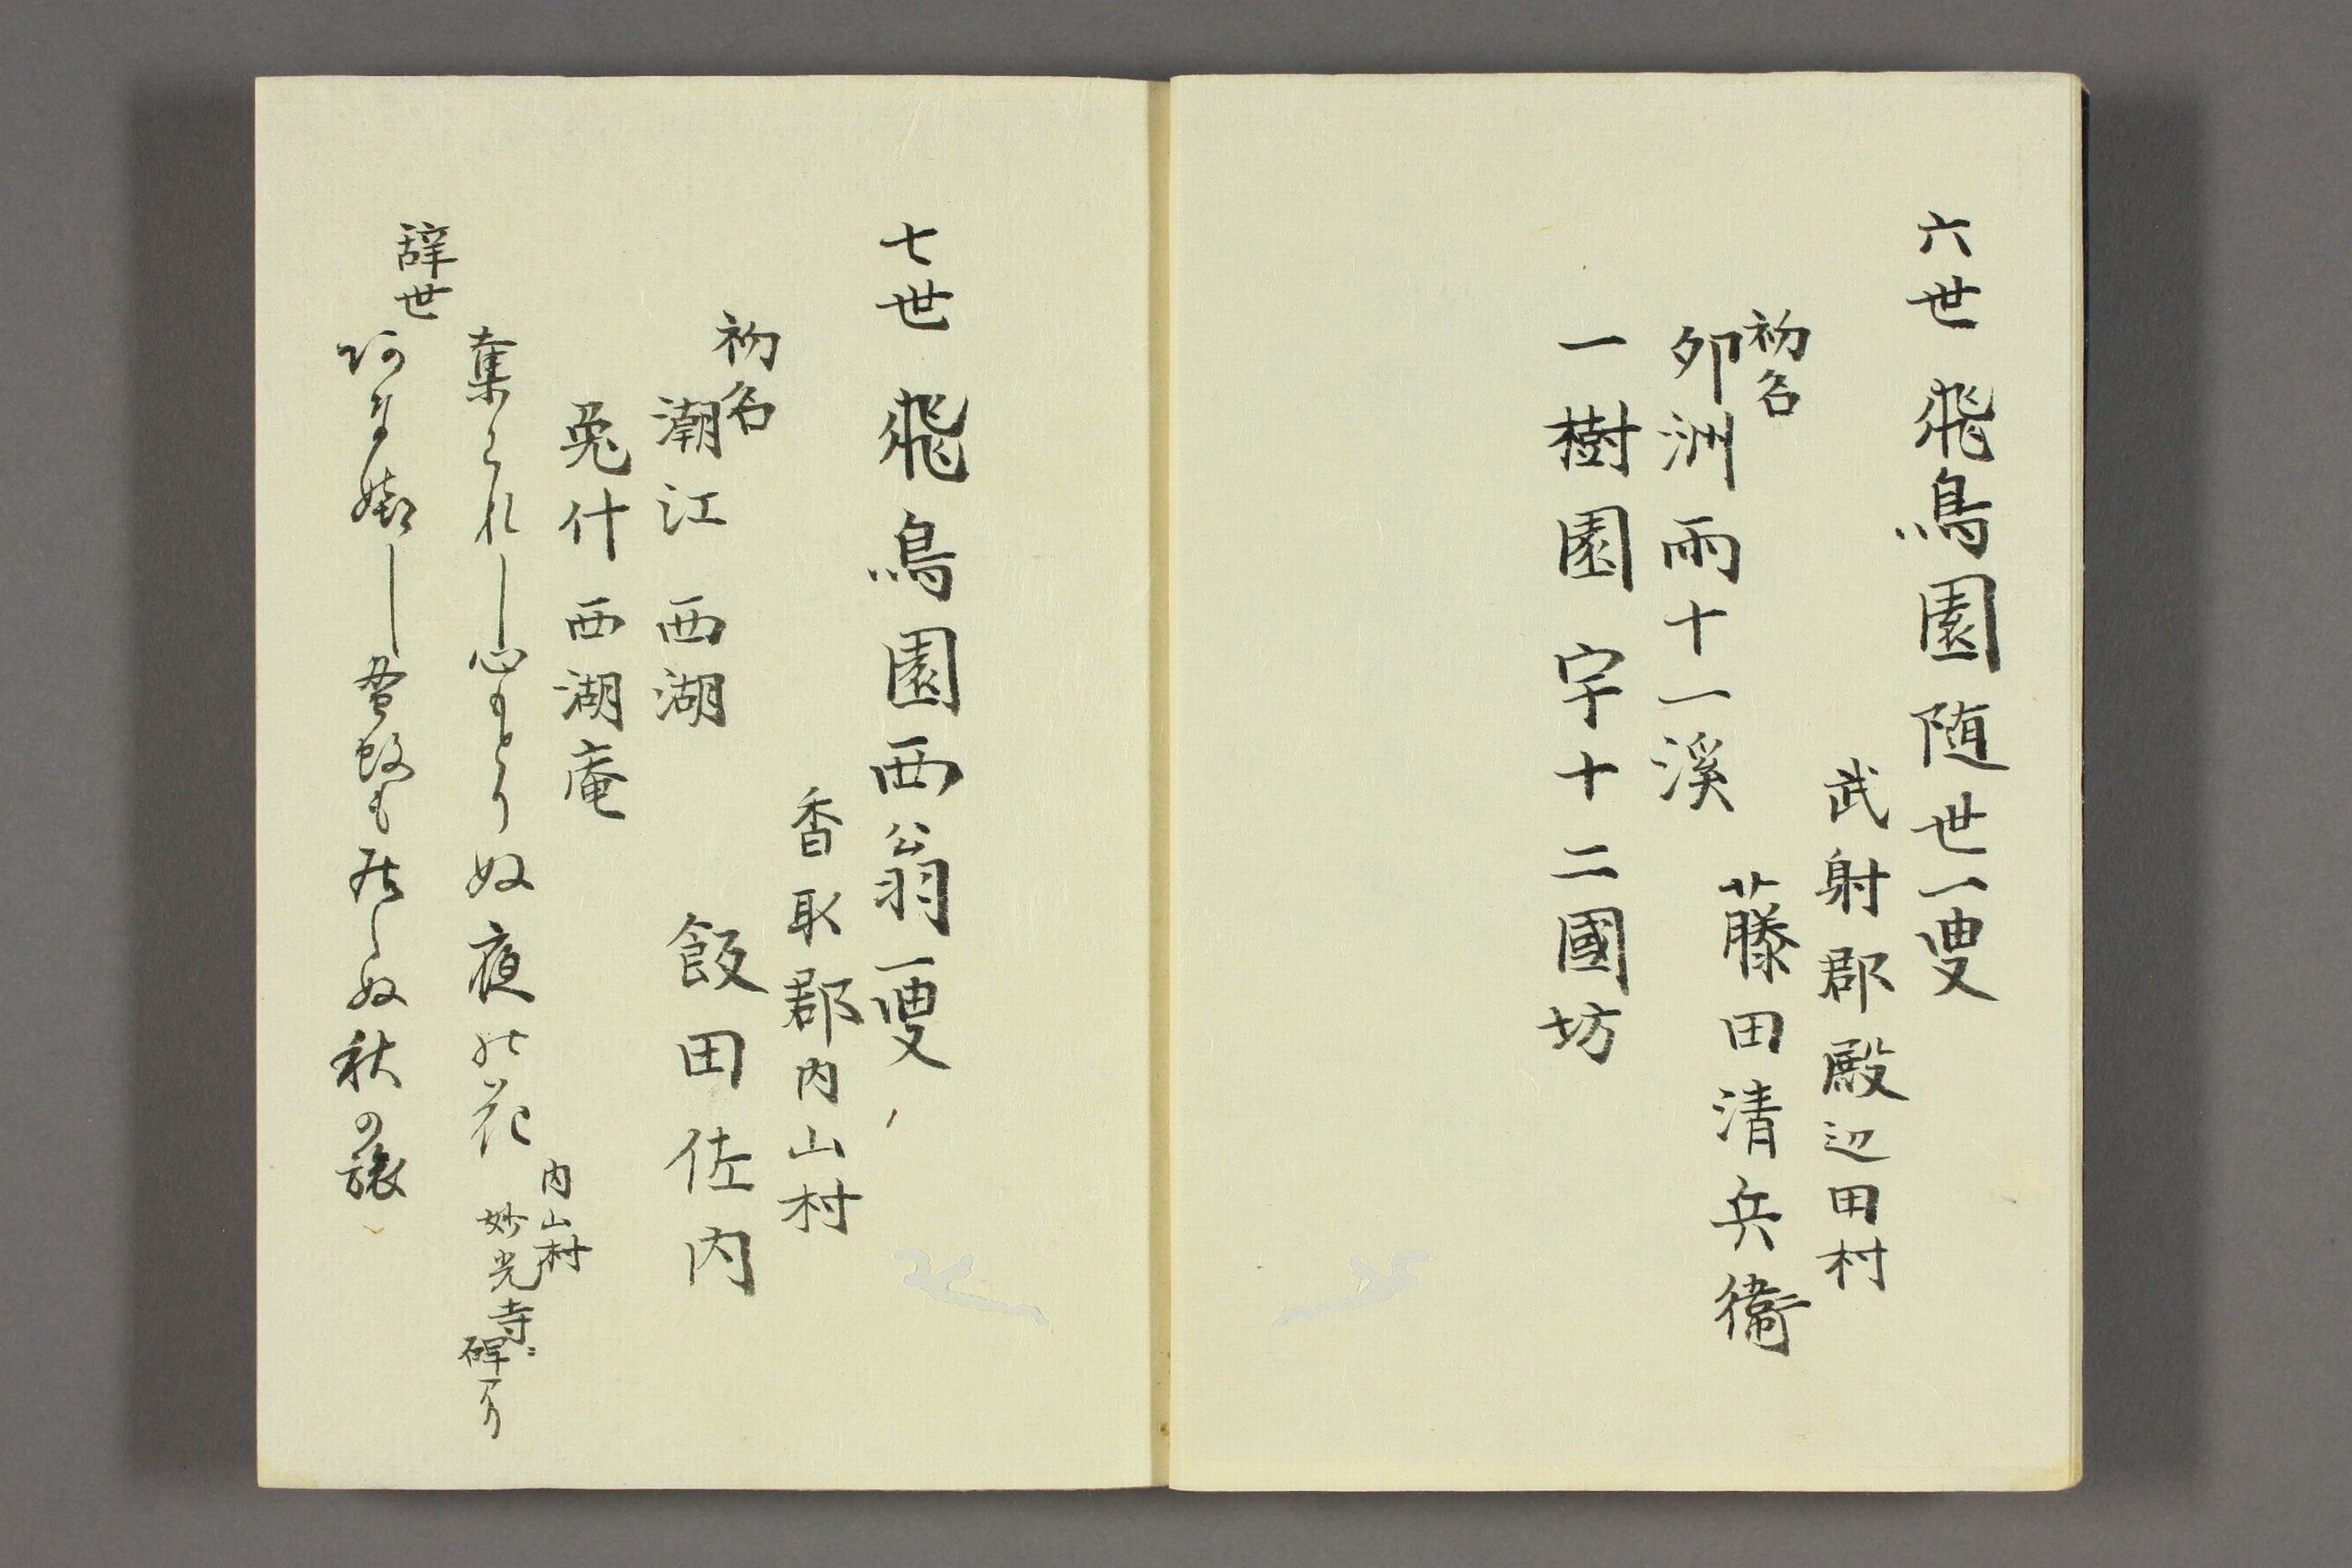 六世 飛鳥園随世一叟
武射郡殿辺田村
初名
夘洲 雨十 一溪 藤田清兵衛
一樹園 宇十 二國坊
七世 飛鳥園西翁一叟
香取郡内山村
初名
潮江 西湖 飯田佐内
兎什 西湖庵
れし心もとりぬ夜の花
内山村
妙光寺ニ
碑あり
辞世
阿な嬉し蚤蚊も居らぬ秋の旅